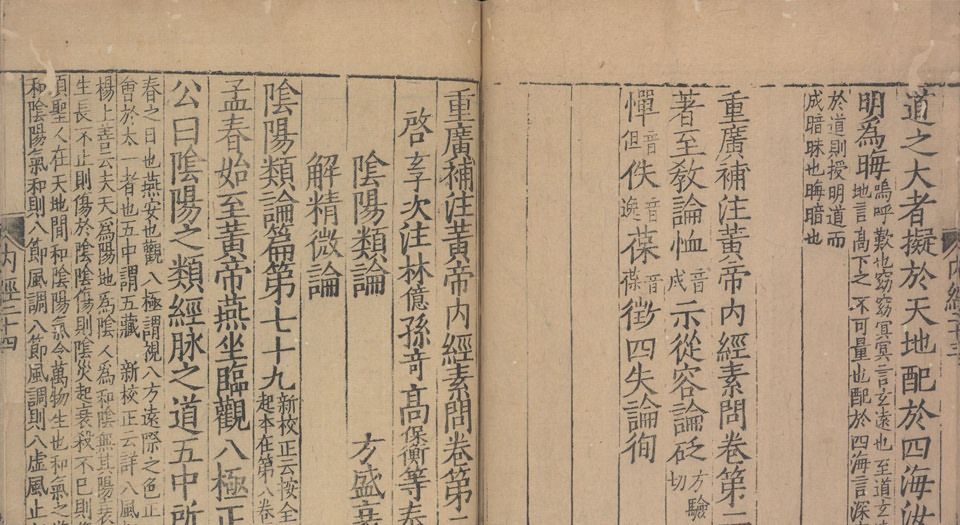 道之大者擬於天地配於四海
明爲晦嗚呼歎也窈窈冥冥言玄遠也至道玄
地言高下之不可量也配於四海言深
於道則授明道而
成暗昧也晦暗也
重廣補注黄帝内經素問卷第二
著至敎論恤音成示從容論砭方驗切
憚音但佚音逸葆音葆徵四失論徇
内經二十三
重廣補注黄帝内經素問卷第二
啓玄子次注林億孫竒高保衡等奉
陰陽類論
方盛衰
解精微論
陰陽類論篇第七十九新校正云按全
起本在第八卷
孟春始至黄帝燕坐臨觀八極正
公曰陰陽之類經脉之道五中所
春之日也燕安也觀八極謂視八方遠際之色正
會於太一者也五中謂五藏 新校正云詳八風
楊上善云夫天爲陽地爲陰人爲和陰無其陽衰
生長不止則傷於陰陰傷則陰災起衰殺不已則
項聖人在天地間和陰陽氣令萬物生也和氣之
和陰陽氣和則八節風調八節風調則八虚風止
内經二十四